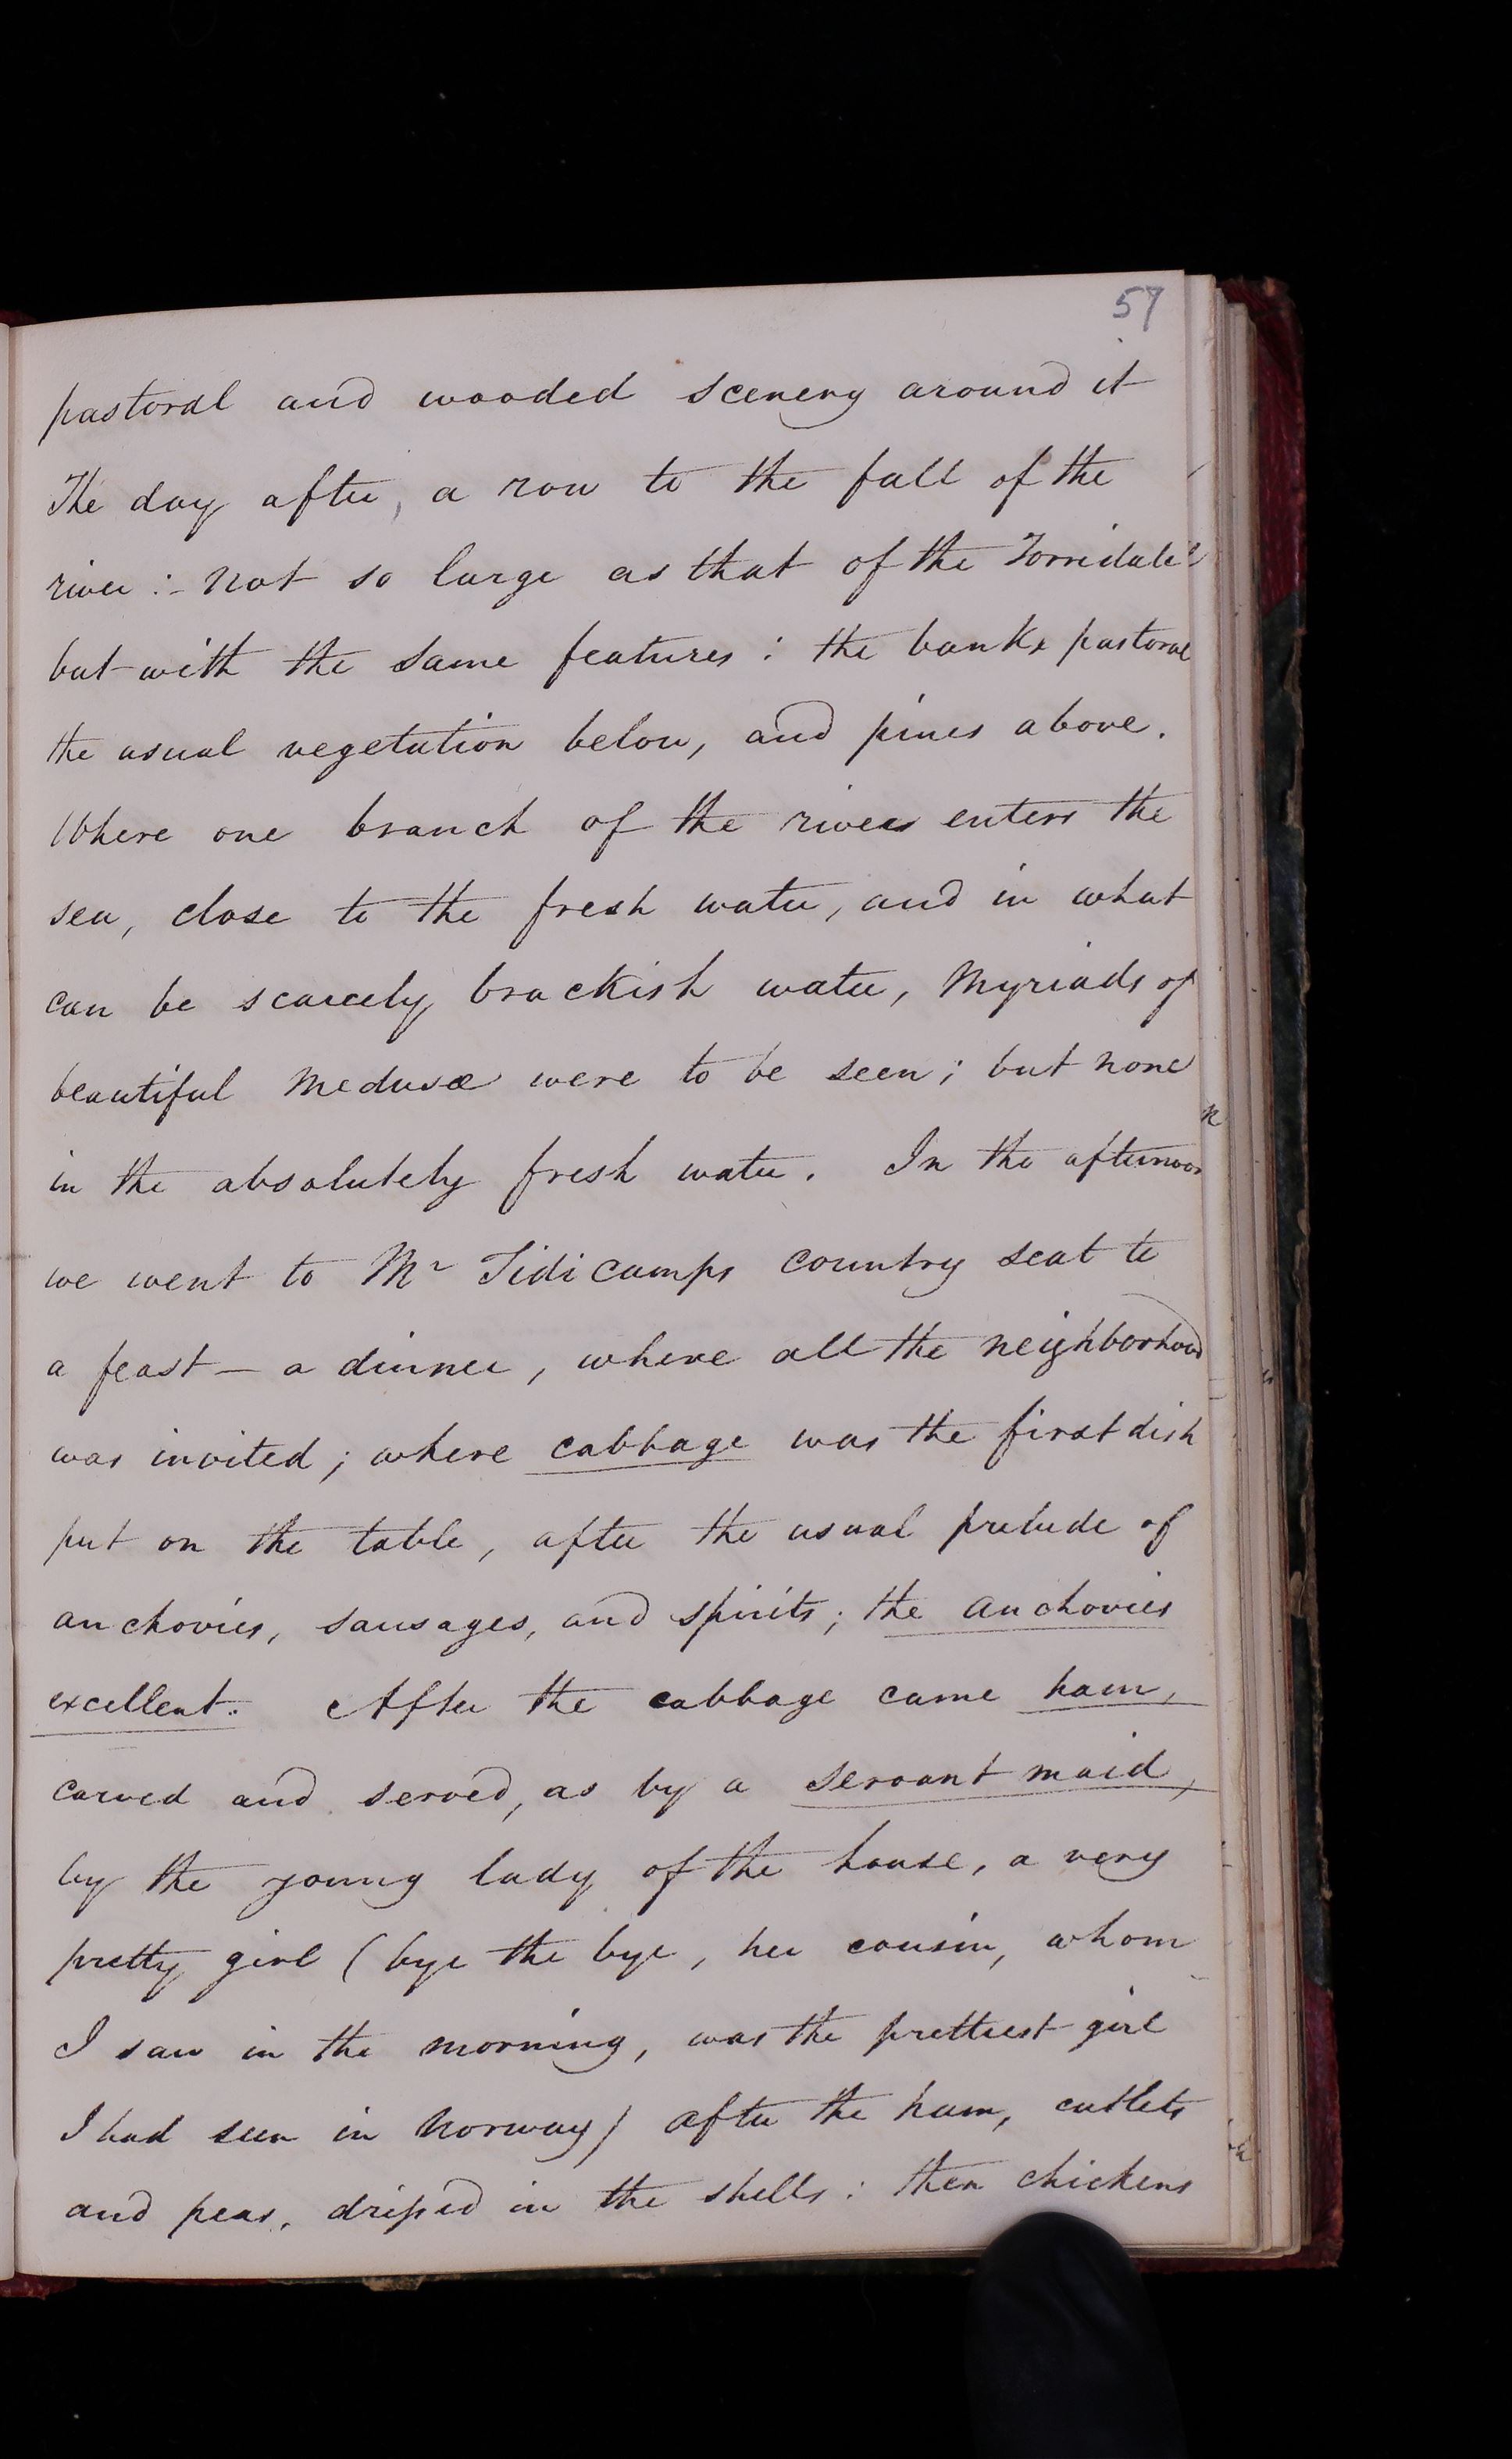 57
pastoral and wooded scenery around it
The day after, a row to the fall of the
river :- not so large as that of the Torridale
but with the same features : the banks pastoral
the usual vegetation below, and pines above.
Where one branch of the river enters the
sea, close to the fresh water, and in what
can be scarcely brackish water, Myriads of
beautiful Medusæ were to be seen ; but none
in the absolutely fresh water. In the afternoon
we went to Mr Tidicamps country seat to
a feast - a dinner, where all the neighborhood
was invited ; where cabbage was the first dish
put on the table, after the usual prelude of
anchovies, sausages, and spirits ; the anchovies
excellent. After the cabbage came ham,
carved and served, as by a servant maid,
by the young lady of the house, a very
pretty girl (bye the bye, her cousin, whom
I saw in the morning, was the prettiest girl
I had seen in Norway) after the ham, cutlets
and peas, dressed in the shells : then chickens